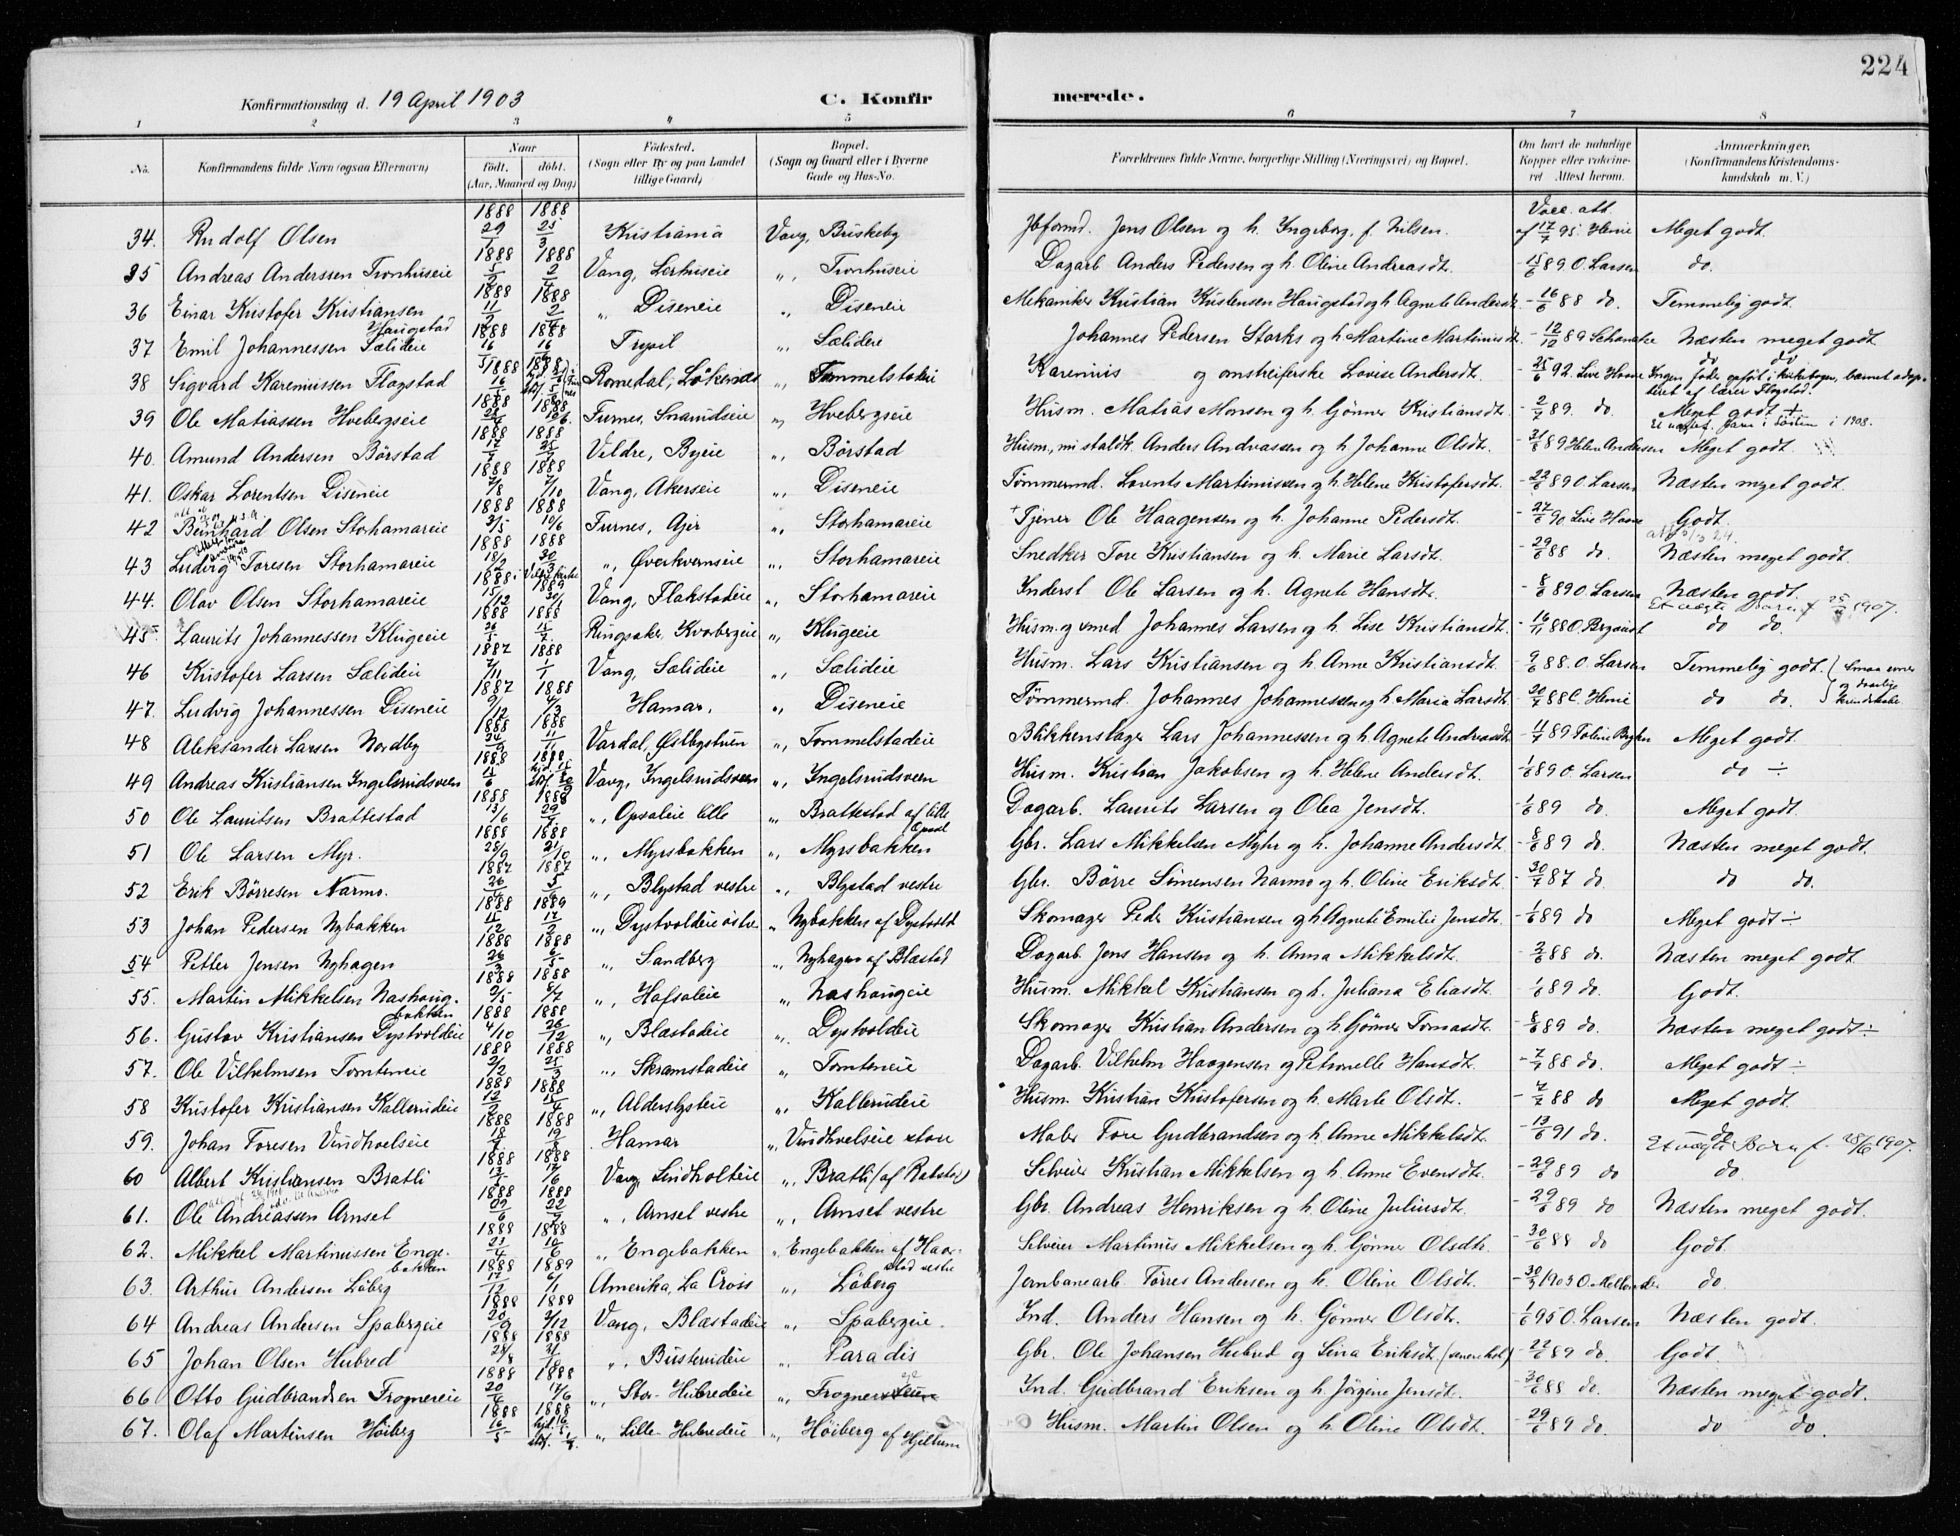 224
Konfirmationsdag d. 19 April 1903 C. Konfirmerede.
1 2 3 4 5 6 7 8
No. Konfirmandens fulde Navn (ogsaa Efternavn) Naar født. døbt. (Aar, Maaned og Dag) Fødested. (Sogn eller By og paa Landet tillige Gaard) Bopæl. (Sogn og Gaard eller i Byerne Gade og Hus-No. Forældrenes fulde Navne, borgerlige Stilling (Næringsvei) og Bopæl. Om havt de naturlige Kopper eller vakcineret. Attest herom. Anmærkninger. (Konfirmandens Kristendomskundskab m. V.)
34. Rudolf Olsen 1888 29/1 1888 25/3 Kristiania Vang, Briskeby Jens Olsen og h. Ingeborg, f. Nilsen. Vacc. att. af 17/7 95 Henie Meget godt.
35 Andreas Anderssen Tronhuseie 1888 5/2 1888 2/4 Vang, Lerhuseie " Tronhuseie Dagarb. Anders Pedersen og h. Oline Andreasdt. - 15/6 89 O. Larsen do.
36 Einar Kristofer Kristiansen Haugstad 1888 11/2 1888 2/4 " Diseneie " Diseneie Mekaniker Kristian Kristensen Haugstad og h. Agnete Andersdt. - 16/6 88 do. Temmelig godt.
37 Emil Johannessen Sælideie 1888 16/ 1888 16/ Trysil " Sælideie Johannes Pedersen Storks og h. Martine Martinusdt. - 12/10 89 Næsten meget godt
38 Sigvard Kareniussen Flagstad 1888 Romedal, Løkenes " Tommelstadeie Karenius og omstreiferske Lovise Andersdt. - 25/6 92. Live Hoave do do Ingen fader opført i kirkebogen, barnet adopteret af lærer Flagstad.
39 Ole Matiassen Hvebergseie 1888 28/4 1888 10/6 Furnes, Snarudseie " Hvebergseie Husm. Matias Monsen og h. Gønner Kristiansdt. - 2/7 89. do. Meget godt + i 1908.
40. Amund Andersen Børstad 1888 17/ 1888 25/ Veldre, Byeie " Børstad Husm., nu staldk. Anders Andreassen og h. Johanne Olsdt. - 21/6 89 Helene Andersen Meget godt.
41. Oskar Lorentsen Diseneie 1888 2/8 1888 7/10 Vang, Akerseie " Diseneie Tømmermd. Lorents Martinussen og h. Helene Kristofersdt. - 22/6 89 O. Larsen Næsten meget godt.
42 Bernhard Olsen Storhamareie 1888 3/5 1888 10/6 Furnes, Ajer " Storhamareie + Tjener Ole Haagensen og h. Johanne Pedersdt. - 27/6 90 Live Hoave Godt.
43 Ludvig Toresen Storhamareie 1888 18/2 1888 30/3 " Øverkvernseie " Storhamareie Snedker Tore Kristiansen og h. Marie Larsdt. - 29/6 88 do. Næsten meget godt.
44. Olav Olsen Storhamareie 1888 15/12 1889 30/1 Vang, Flakstadeie " Storhamareie Inderst Ole Larsen og h. Agnete Hansdt. - 8/6 89 O. Larsen Næsten godt. Et uægte Barn f. 25/ 1907.
45 Laurits Johannessen Klugeeie 1888 26/5 1888 15/7 Ringsaker, Kvarbergeie " Klugeeie Husm. og smed Johannes Larsen og h. Lise Kristiansdt. - 16/11 88 do do.
46 Kristofer Larsen Sælideie 1887 7/11 1888 1/1 Vang, Sælideie " Sælideie Husm. Lars Kristiansen og h. Anne Kristiansdt. - 9/6 88. O. Larsen Temmelig godt. Smaa evner og daarlig
47. Ludvig Johannessen Diseneie 1887 9/12 1888 4/3 Hamar. " Diseneie Tømmermd. Johannes Johannessen og h. Maria Larsdt. - 20/7 88 C. Henie do do.
48 Aleksander Larsen Nordby 1888 24/9 1888 11/11 Vardal, Østbystuen " Tommelstadeie Blikkenslager Lars Johannessen og h. Agnete Andreasdt. - 11/7 89 Meget godt.
49 Andreas Kristiansen Ingelsrudsveen 1888 15/6 1888 Vang, Ingelsrudsveen " Ingelsrudsveen Husm. Kristian Jakobsen og h. Helene Andersdt. - 1/6 89 O. Larsen do ÷
50 Ole Lauritsen Brattestad 1888 13/6 1888 29/7 " Opsaleie lille " Brattestad af lille Opsal Dagarb. Laurits Larsen og Olea Jensdt. - 1/6 89 do Meget godt.
51 Ole Larsen Myr. 1888 28/9 1888 21/10 " Myrsbakken " Myrsbakken Gbr. Lars Mikkelsen Myhr og h. Johanne Andersdt. - 8/6 89 do. Næsten meget godt.
52 Erik Børresen Narmo. 1887 26/4 1887 5/6 " Blystad vestre " Blystad vestre Gbr. Børre Simensen Narmo og h. Oline Eriksdt. - 30/7 87 do. do do.
53 Johan Pedersen Nybakken 1888 15/12 1889 17/2 " Dystvoldeie østre " Nybakken af Dystvold Skomager Peder Kristiansen og h. Agnete Emilie Jensdt. - 1/6 89 do Meget godt ÷
54 Petter Jensen Nyhagen 1888 26/3 1888 6/5 " Sandberg " Nyhagen af Blæstad Dagarb. Jens Hansen og h. Anna Mikkelsdt. - 2/6 88 do. Næsten meget godt.
55. Martin Mikkelsen Nashougbakken 1888 2/5 1888 8/7 " Hafsaleie " Nashougeie Husm. Mikkel Kristiansen og h. Juliana Eliasdt. - 1/6 89 do. Godt.
56. Gustav Kristiansen Dystvoldeie 1888 4/10 1888 26/12 " Blæstadeie " Dystvoldeie Skomager Kristian Andersen og h. Gønner Tomasdt. - 8/6 89 do. Næsten meget godt ÷
57. Ole Vilhelmsen Tomteneie 1888 21/2 1888 25/3 " Skramstadeie " Tomteneie Dagarb. Vilhelm Haagensen og Petronelle Hansdt. - 7/7 88 do. Meget godt ÷
58 Kristofer Kristiansen Kallerudeie 1888 12/2 1888 15/4 " Alderslysteie " Kallerudeie Husm. Kristian Kristofersen og h. Marte Olsdt. - 7/7 88 do Meget godt.
59. Johan Toresen Vindhvelseie 1888 18/7 1888 19/8 Hamar " Vindhvelseie store Maler Tore Gudbrandsen og h. Anne Mikkelsdt. - 13/6 91 do. do Et uægte Barn f. 28/6 1907.
60 Albert Kristiansen Bratli 1888 13/5 1888 17/6 Vang Lindholteie " Bratli (af Rabstad) Selveier Kristian Mikkelsen og h. Anne Evensdt. - 29/6 89 do do.
61. Ole Andreassen Arnset 1888 29/6 1888 22/9 " Arnset vestre " Arnset vestre Gbr. Andreas Henriksen og h. Oline Juliusdt. - 29/6 89 do Næsten meget godt.
62. Mikkel Martinussen Engebakken 1888 23/4 1888 10/6 " Engebakken " Engebakken af Haarstad vestre Selveier Martinus Mikkelsen og h. Gønner Olsdt. - 30/6 88 do Godt.
63. Arthur Andersen Løberg 1888 17/12 1889 6/1 Amerika, La Crois " Løberg Jernbanearb. Tørres Andersen og h. Oline Olsdt. - 30/3 1903 O. do.
64 Andreas Andersen Spabergeie 1888 20/9 1888 2/12 Vang, Blæstadeie " Spabergeie. Ind. Anders Hansen og h. Gønner Olsdt. - 1/6 95 O. Larsen Næsten godt.
65 Johan Olsen Hubred 1888 28/8 1888 21/ " Busterudeie " Paradis Gbr. Ole Johansen Hubred og Lina Eriksdt. - 22/6 89 do. Godt.
66 Otto Gudbrandsen Trognereie 1888 20/4 1888 17/6 " Stor-Hubredeie " Trogner Ind. Gudbrand Eriksen og h. Jørgine Jensdt. - 30/6 88 do. Næsten meget godt.
67. Olaf Martinsen Høiberg 1888 16/5 1888 " Lille-Hubredeie " Høiberg af Hjellum Husm. Martin Olsen og h. Oline Olsdt. - 29/6 89 do. do do.